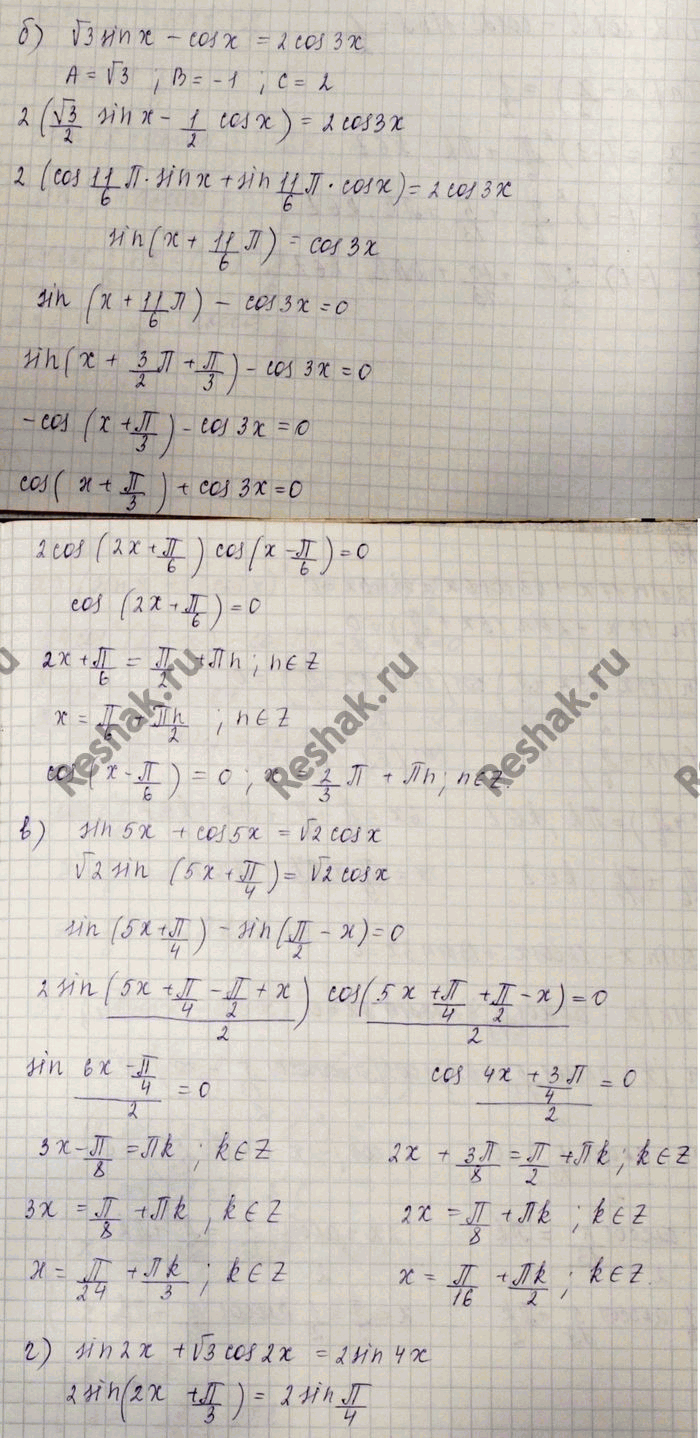 б) √3 sin x - cos x = 2 cos 3x
A = √3 ; B = -1 ; C = 2
2 (√3/2 sin x - 1/2 cos x) = 2 cos 3x
2 (cos 11/6 π · sin x + sin 11/6 π · cos x) = 2 cos 3x
sin(x + 11/6 π) = cos 3x
sin (x + 11/6 π) - cos 3x = 0
sin(x + 3/2 π + π/3) - cos 3x = 0
-cos (x + π/3) - cos 3x = 0
cos( x + π/3 ) + cos 3x = 0
2 cos (2x + π/6) cos(x - π/6) = 0
cos (2x + π/6) = 0
2x + π/6 = π/2 + πn ; n ∈ Z
x = π/6 + πn/2 ; n ∈ Z
cos(x - π/6) = 0 ; x = 2/3 π + πn ; n ∈ Z.
Reshak.ru Reshak.ru Reshak.ru
в) sin 5x + cos 5x = √2 cos x
√2 sin (5x + π/4) = √2 cos x
sin (5x + π/4) - sin(π/2 - x) = 0
2 sin (5x + π/4 - π/2 + x)/2 cos (5x + π/4 + π/2 - x)/2 = 0
sin (6x - π/4)/2 = 0 cos (4x + 3π/4)/2 = 0
3x - π/8 = πk ; k ∈ Z 2x + 3π/8 = π/2 + πk ; k ∈ Z
3x = π/8 + πk ; k ∈ Z 2x = π/8 + πk ; k ∈ Z
x = π/24 + πk/3 ; k ∈ Z x = π/16 + πk/2 ; k ∈ Z.
г) sin 2x + √3 cos 2x = 2 sin 4x
2 sin(2x + π/3) = 2 sin π/4